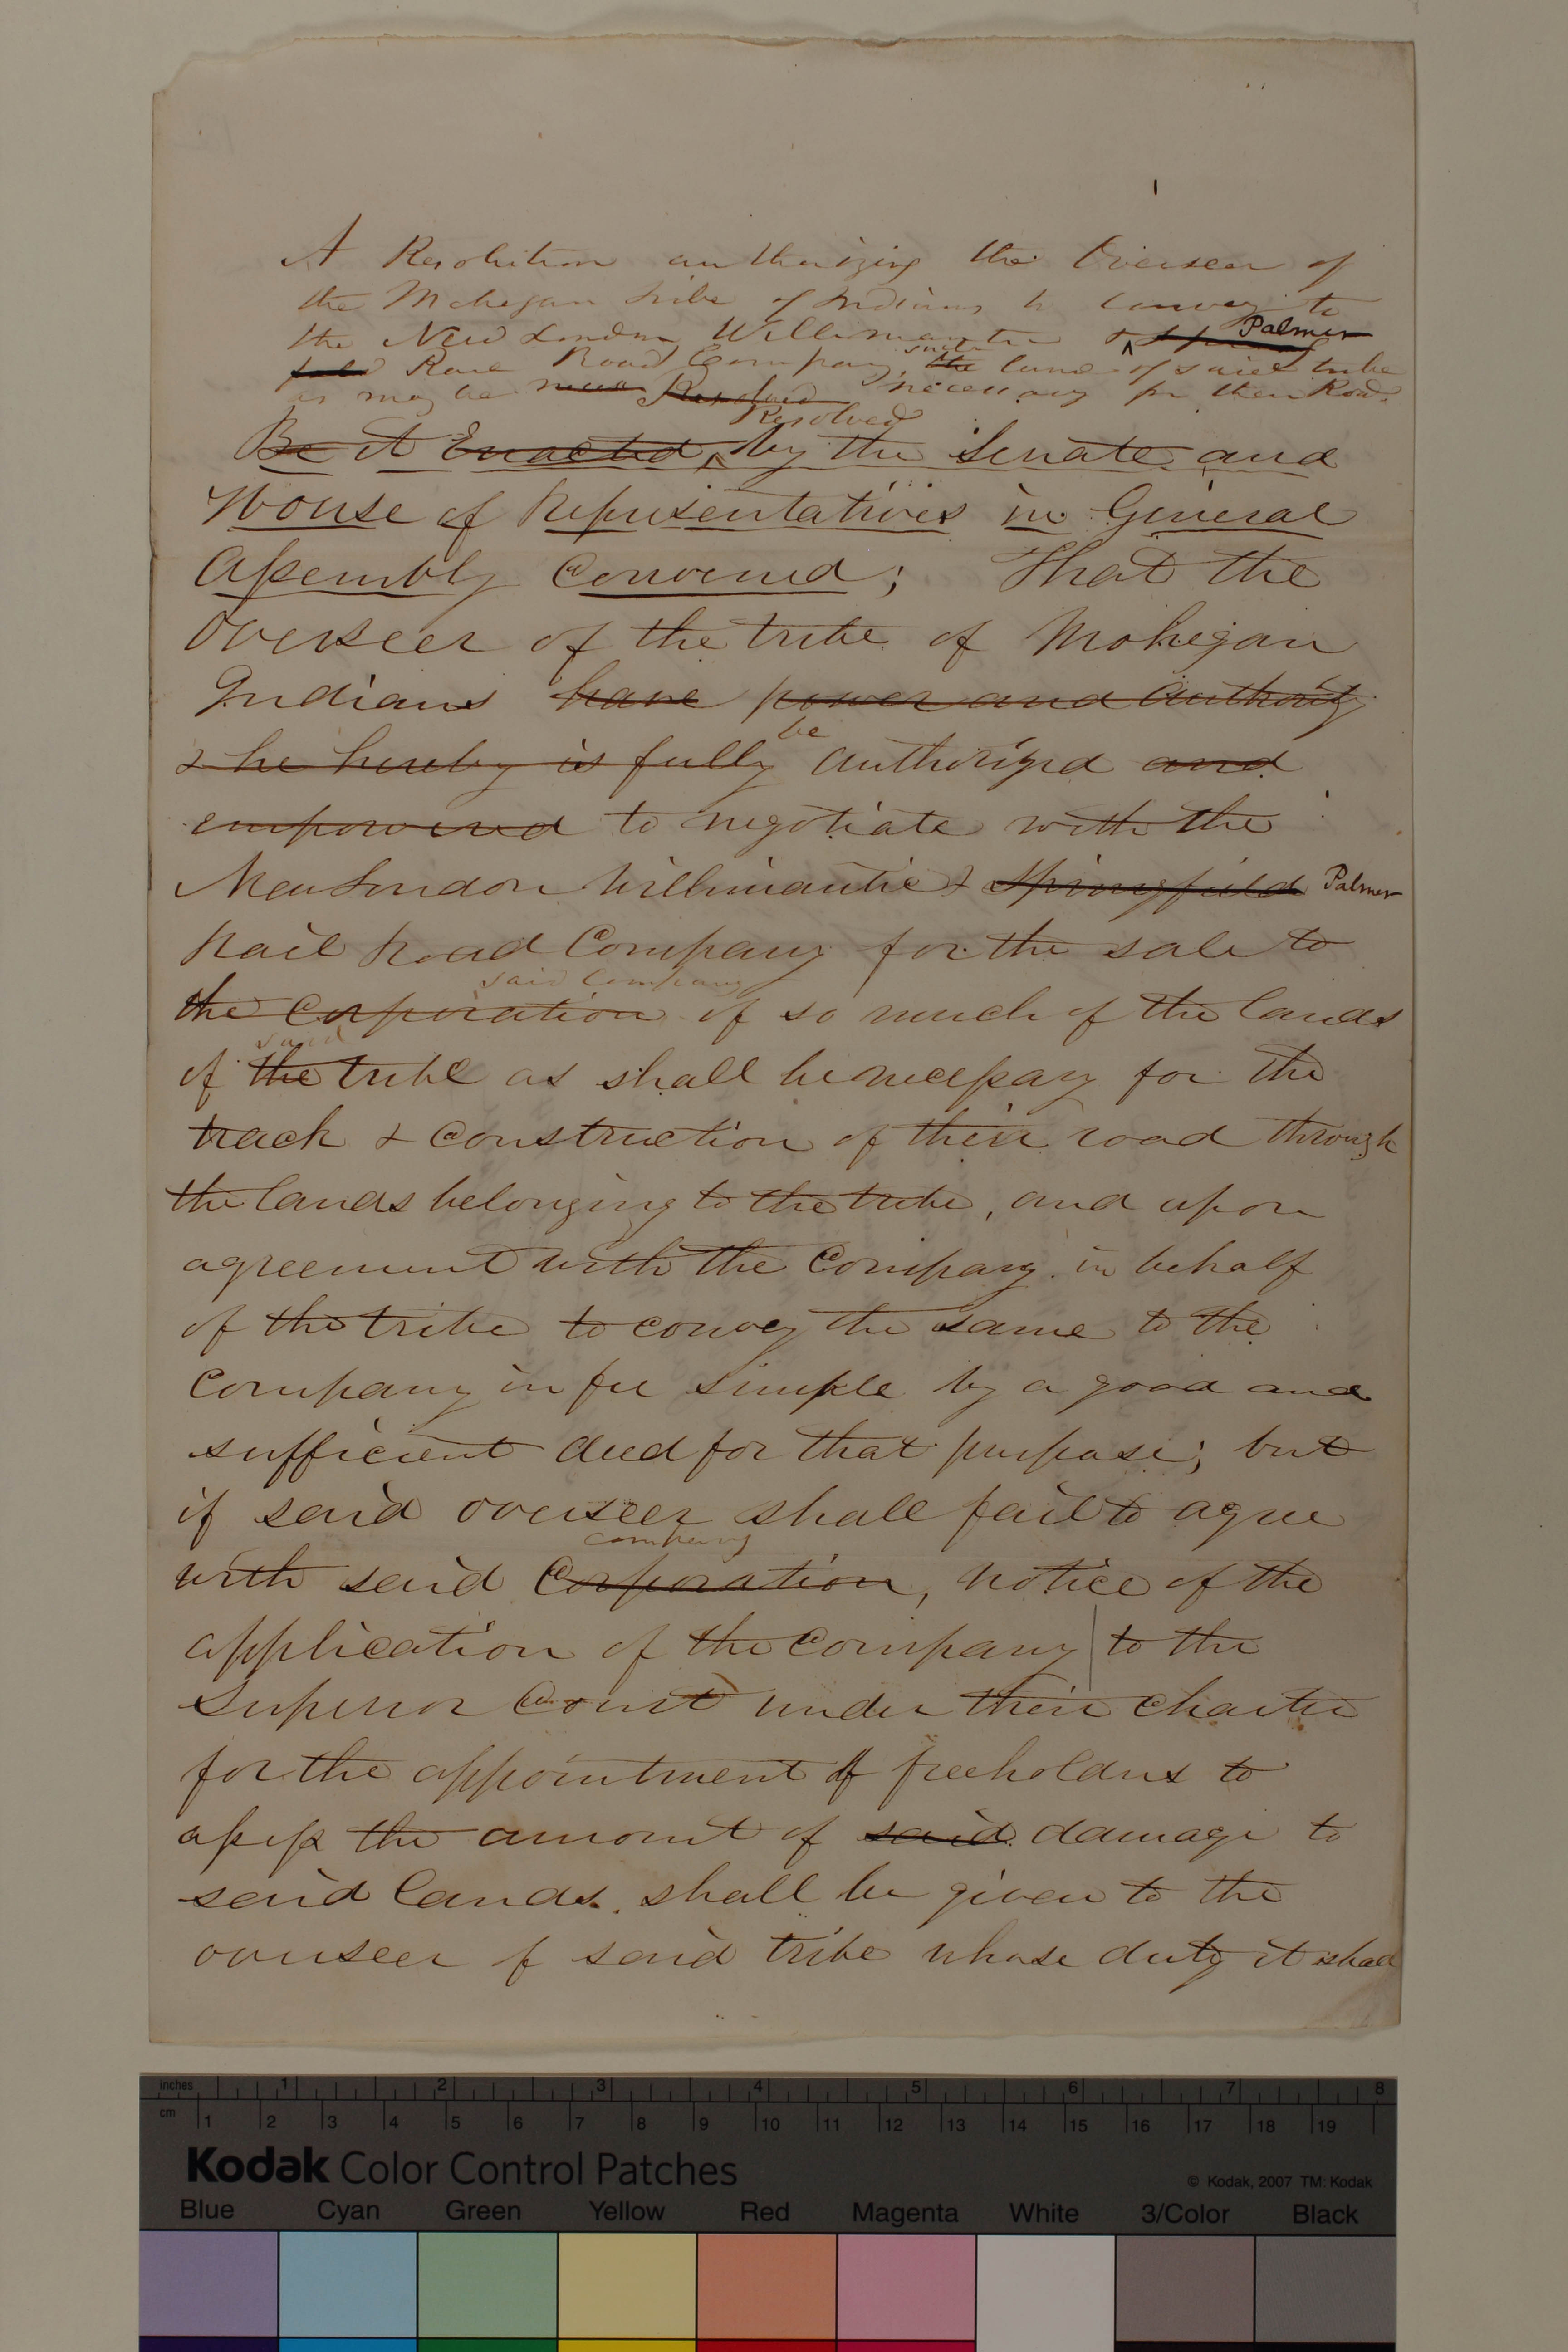 A Resolution authorizing the Overseer of
the Mohegan tribe of Indians to convey to
the New London Willimantic & Spring Palmer
field Rail Road Company, such the land of said tribe
as may be necess Resolved necessary for their Road.
Resolved
Be it Enacted by the Senate and
House of Representatives in General
Assembly Convened; That the
Overseer of the tribe of Mohegan
Indians have power and authority
be
& he hereby is fully authorized and
empowered to negotiate with the
New London Willimantic & Springfield Palmer
Rail Road Company for the sale to
said Company
the Corporation of so much of the lands
said
of the tribe as shall be necessary for the
track & construction of their road through
the lands belonging to the tribe, and upon
agreement with the Company in behalf
of the tribe to convey the same to the
Company in fee simple by a good and
sufficient deed for that purpose; but
if said overseer shall fail to agree
company
with said Corporation, notice of the
application of the Company to the
Superior Court under their charter
for the appointment of freeholders to
assess the amount of said damage to
said lands shall be given to the
overseer of said tribe whose duty it shall
inches 1 2 3 4 5 6 7 8
cm 1 2 3 4 5 6 7 8 9 10 11 12 13 14 15 16 17 18 19
Kodak Color Control Patches
© Kodak, 2007 TM: Kodak
Blue Cyan Green Yellow Red Magenta White 3/Color Black